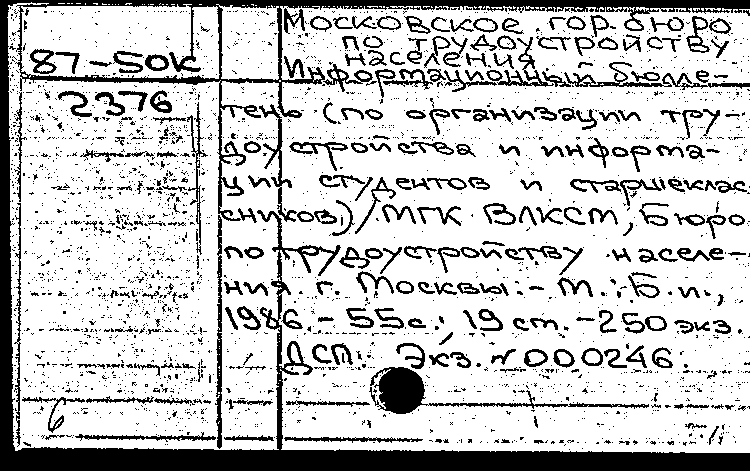 Московское гор. бюро
по трудоустройству
населения
87-5ок
Информационный бюлле-
2376
тень (по организации тру-
доустройства и информа-
ции студентов и старшеклас
сников) / МГК ВЛКСМ, Бюро
по трудоустройству населе-
ния г. Москвы. - М.: Б.и.,
1986. - 55с.; 19 см. - 250 экз.
ДСП. Экз. №000246.
6